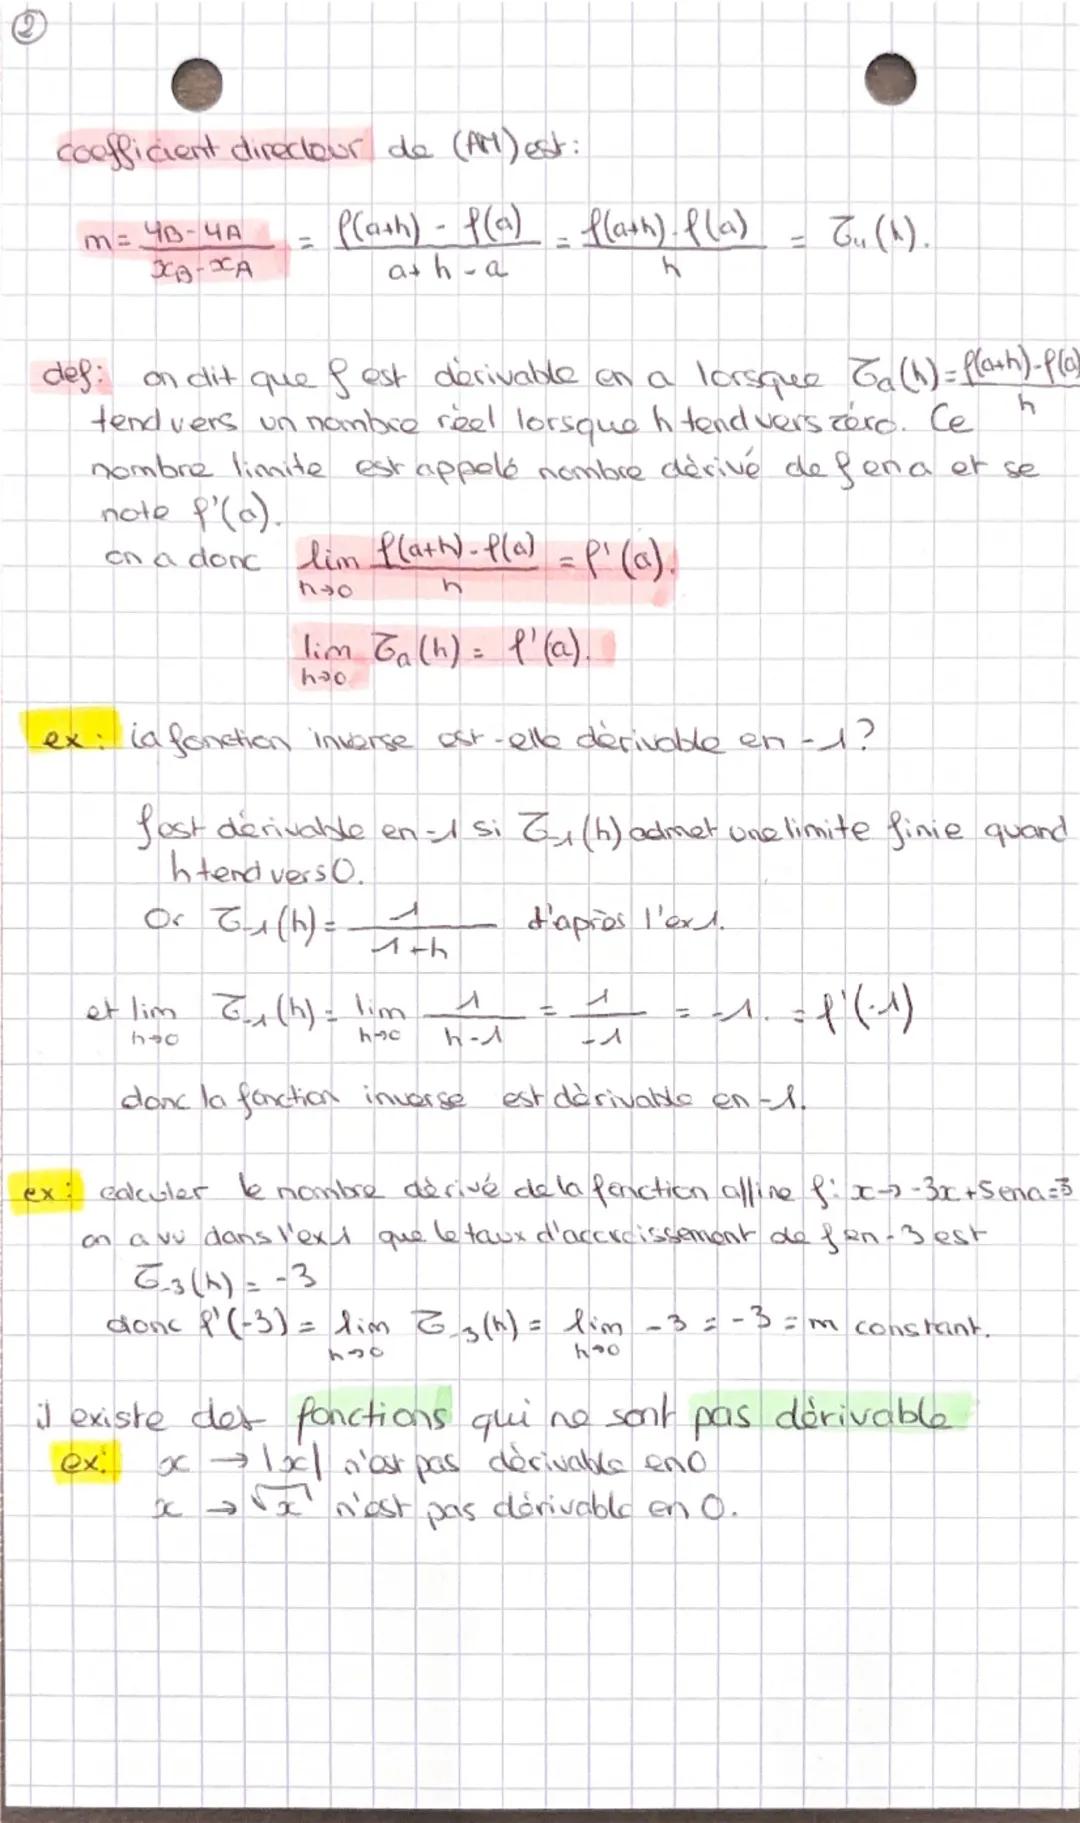 ②
coefficient directeur de (AM) est :
m = yB-yA / xB-xA = f(a+h) - f(a) / a+h-a = f(a+h)-f(a) / h = τu(h).
def: on dit que f est dérivable en a lorsque τa(h) = f(a+h)-f(a) / h
tend vers un nombre réel lorsque h tend vers zéro. Ce
nombre limite est appelé nombre dérivé de f en a et se
note f'(a).
on a donc lim h→0 f(a+h)-f(a) / h = f'(a).
lim h→0 τa(h) = f'(a).
ex : la fonction inverse est-elle dérivable en -1?
f est dérivable en -1 si τ-1(h) admet une limite finie quand
h tend vers 0.
Or τ-1(h) = 1 / -1+h d'après l'ex1.
et lim h→0 τ-1(h) = lim h→0 1 / h-1 = 1 / -1 = -1. = f'(-1)
donc la fonction inverse est dérivable en -1.
ex : calculer le nombre dérivé de la fonction affine f: x→ -3x+5 en a=3
on a vu dans l'ex1 que le taux d'accroissement de f en -3 est
τ-3(h) = -3
donc f'(-3) = lim h→0 τ-3(h) = lim h→0 -3 = -3 = m constant.
il existe des fonctions qui ne sont pas dérivable
ex: x → |x| n'est pas dérivable en 0
x → √x n'est pas dérivable en 0.